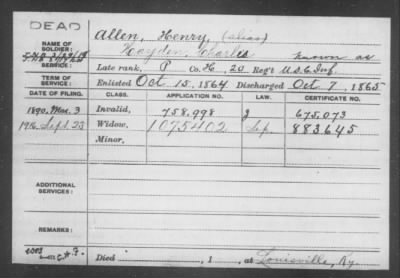 DEAD
Allen, Henry, (alias)
NAME OF SOLDIER:
Hayden, Charles known as
SERVICE:
Late rank, P Co. H, 20 Reg't U.S.C. Inf.
TERM OF SERVICE:
Enlisted Oct 15, 1864 Discharged Oct 7, 1865
DATE OF FILING. CLASS. APPLICATION NO. LAW. CERTIFICATE NO.
1890, Mar. 3 Invalid, 758,998 J 675,073
1916 Sept. 23 Widow, 1075402 Sep. 883,645
Minor,
ADDITIONAL SERVICES:
REMARKS:
Died , 1 , at Louisville, Ky.